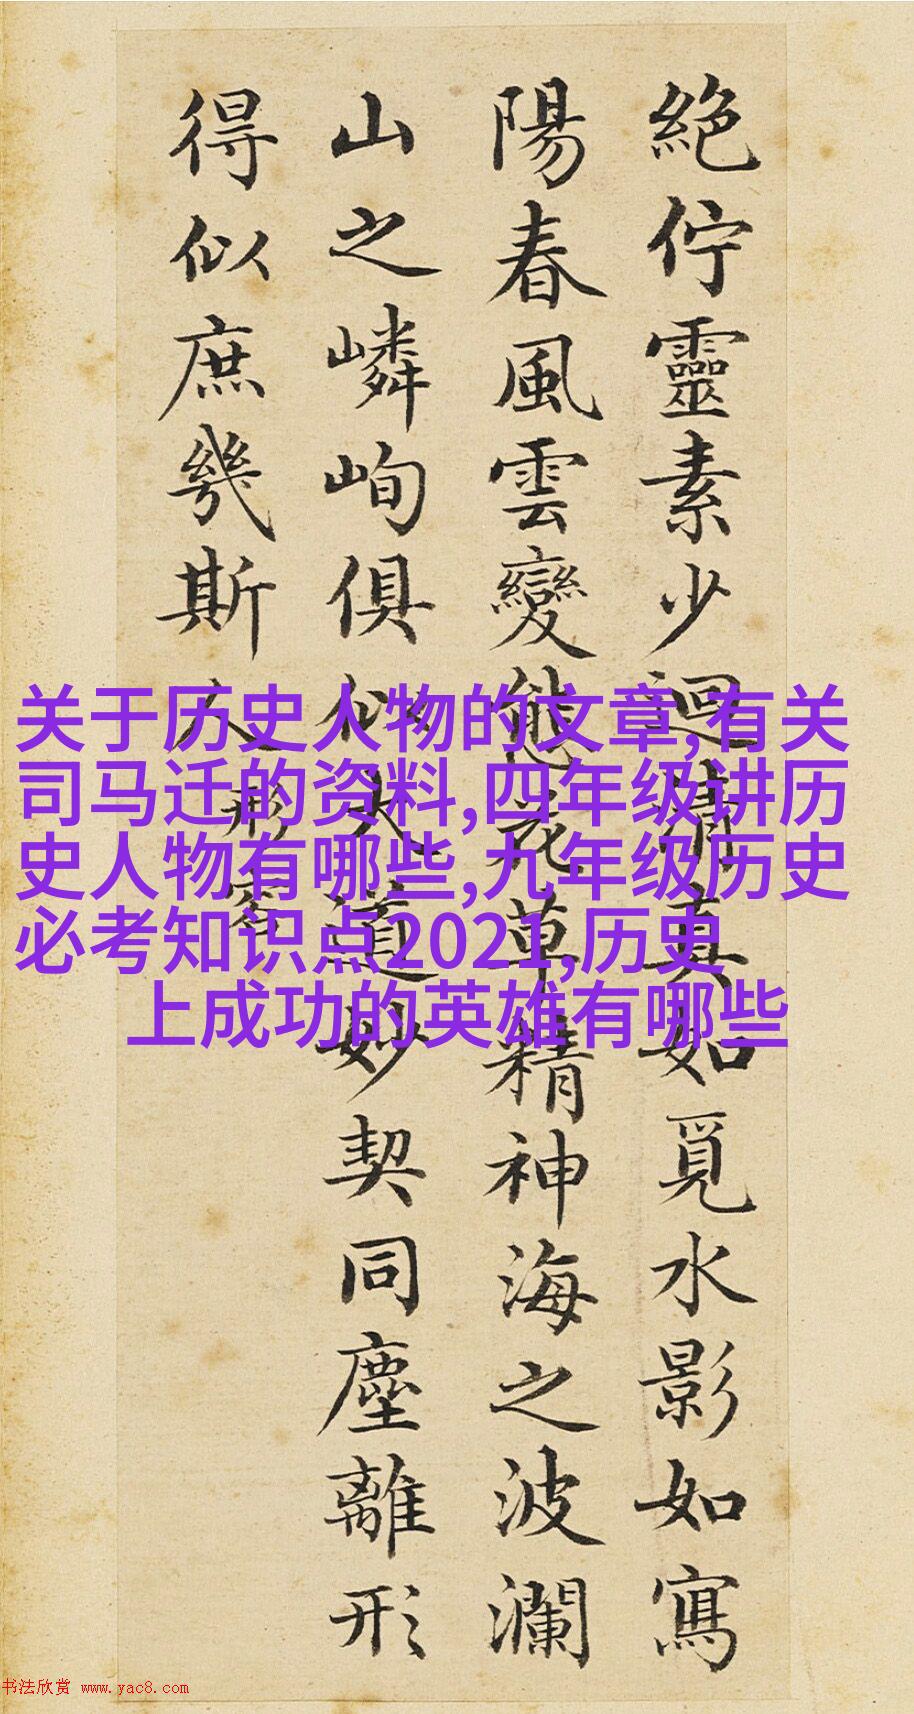 絶佇靈素少迴清真如覓水影如寫
陽春風雲變態花草精神海之波瀾
山之嶙峋俱似大道妙契同塵離形
得似庶幾斯人
形容
关于历史人物的文章,有关
司马迁的资料,四年级讲历
史人物有哪些,九年级历史
必考知识点2021,历史
上成功的英雄有哪些
书法欣赏 www.yac8.com